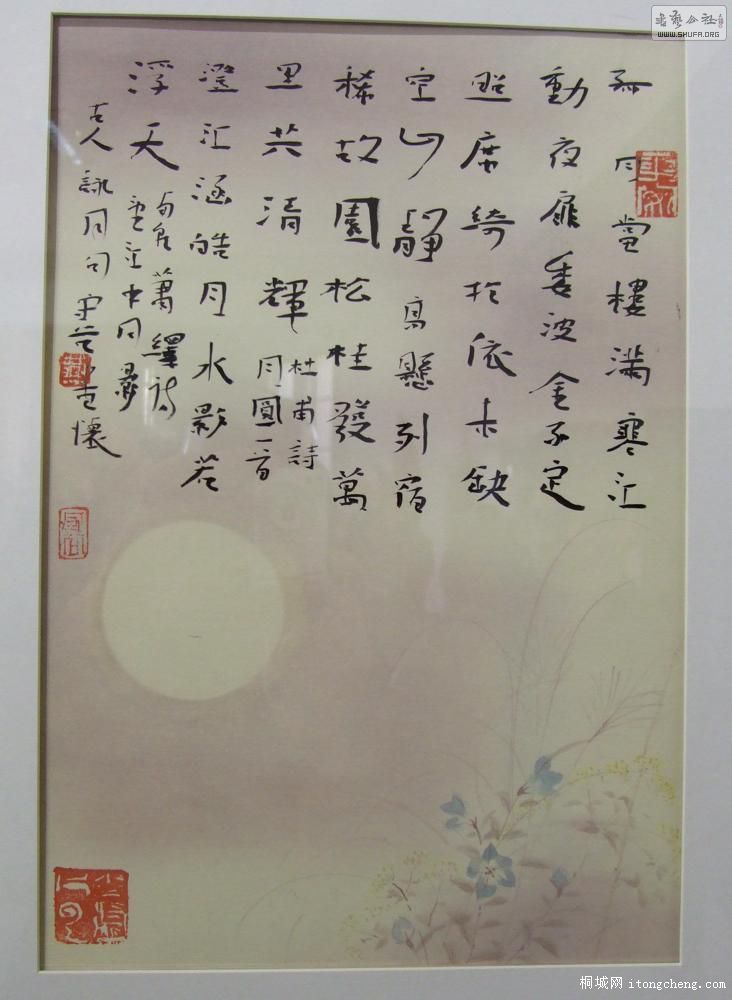 書藝公社
WWW.SHUFA.ORG
孤月當樓滿寒江
動夜扉委波金不定
照席綺扵依未缺
空山靜高懸列宿
稀故園松桂發萬
里共清輝
杜甫詩
月圓一首
澄江涵皓月水影若
浮天
蕭繹詩
望江中月影
古人詠月句
桐城网 itongcheng.com